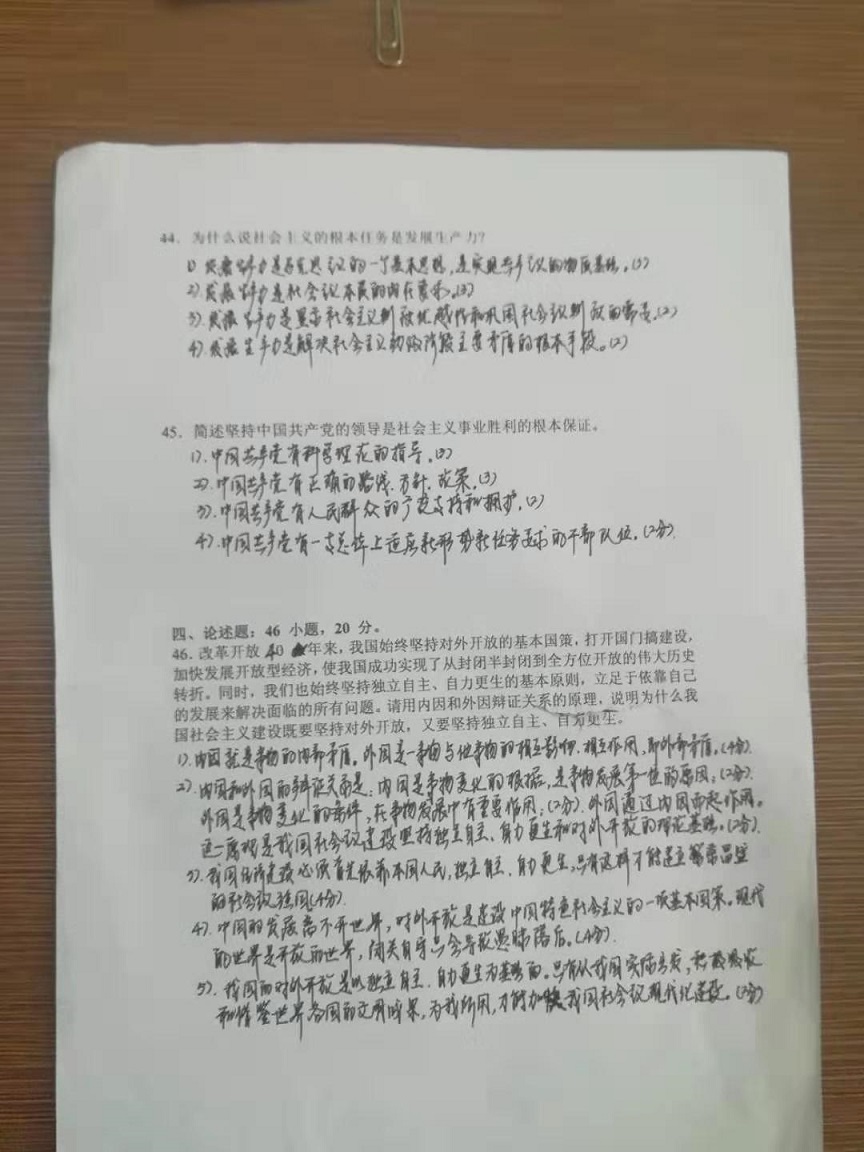 44．为什么说社会主义的根本任务是发展生产力？
1）发展生产力是马克思主义的一个基本思想，是实现共产主义的物质基础。(3)
2）发展生产力是社会主义本质的内在要求。(3)
3）.发展生产力是显示社会主义制度优越性和巩固社会主义制度的需要。(2)
4）.发展生产力是解决社会主义初级阶段主要矛盾的根本手段。(2)
45．简述坚持中国共产党的领导是社会主义事业胜利的根本保证。
1）.中国共产党有科学理论的指导。(3)
2）.中国共产党有正确的路线.方针.政策。(3)
3）.中国共产党有人民群众的广泛支持和拥护。(2)
4）.中国共产党有一支总体上适应新形势新任务要求的干部队伍。(2分).
四、论述题：46 小题，20 分。
46．改革开放 40 年来，我国始终坚持对外开放的基本国策，打开国门搞建设，
加快发展开放型经济，使我国成功实现了从封闭半封闭到全方位开放的伟大历史
转折。同时，我们也始终坚持独立自主、自力更生的基本原则，立足于依靠自己
的发展来解决面临的所有问题。请用内因和外因辩证关系的原理，说明为什么我
国社会主义建设既要坚持对外开放，又要坚持独立自主、自力更生。
1）.内因就是事物的内部矛盾。外因是一事物与他事物的相互影响.相互作用，即外部矛盾。(4分)
2）.内因和外因的辩证关系是：内因是事物变化的根据，是事物发展第一位的原因；(2分).
外因是事物变化的条件，在事物发展中有重要作用；(2分).外因通过内因而起作用。
这一原理是我国社会主义建设坚持独立自主、自力更生和对外开放的理论基础。(2分).
3）.我国经济建设必须首先依靠本国人民，独立自主、自力更生，只有这样才能建立繁荣昌盛
的社会主义强国(4分).
4）.中国的发展离不开世界，对外开放是建设中国特色社会主义的一项基本国策。现代
的世界是开放的世界，闭关自守只会导致愚昧落后。(4分).
5）.我国的对外开放是以独立自主、自力更生为基础的。只有从我国实际出发，积极吸收
和借鉴世界各国的文明成果，为我所用，才能加快我国社会主义现代化建设。(2分)